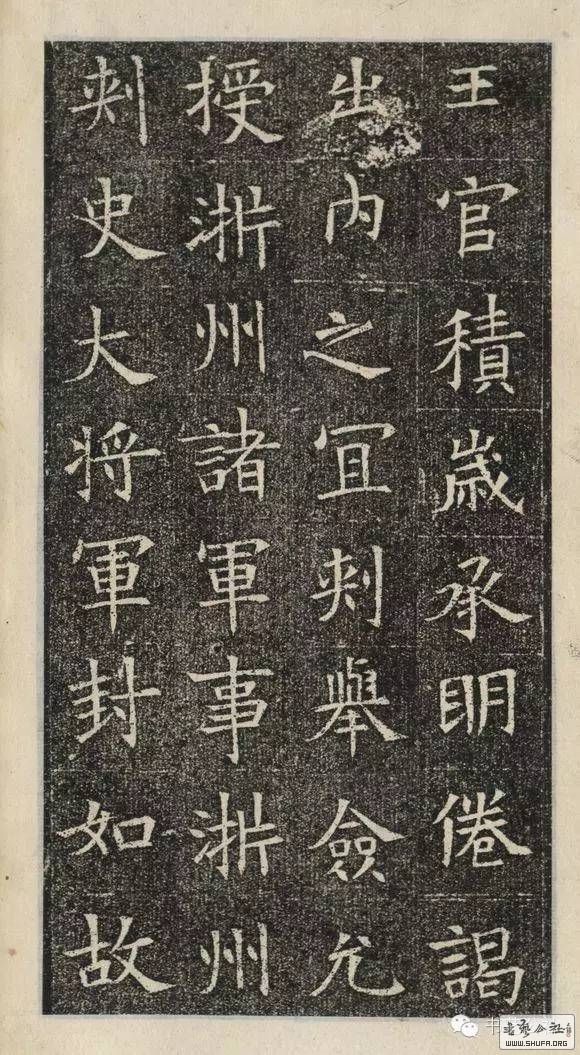 王官積歲承眀倦謁
出內之冝刾舉僉允
授淅州諸軍事淅州
刾史大将軍封如故
书
书艺公社
WWW.SHUFA.ORG